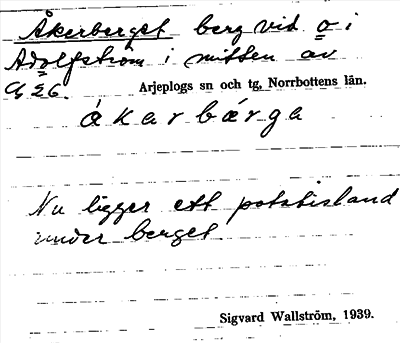 Åkerberget berg vid o i
Adolfström i mitten av
G 26.
Arjeplogs sn och tg, Norrbottens län.
åkarbærga
Nu ligger ett potatisland
under berget.
Sigvard Wallström, 1939.